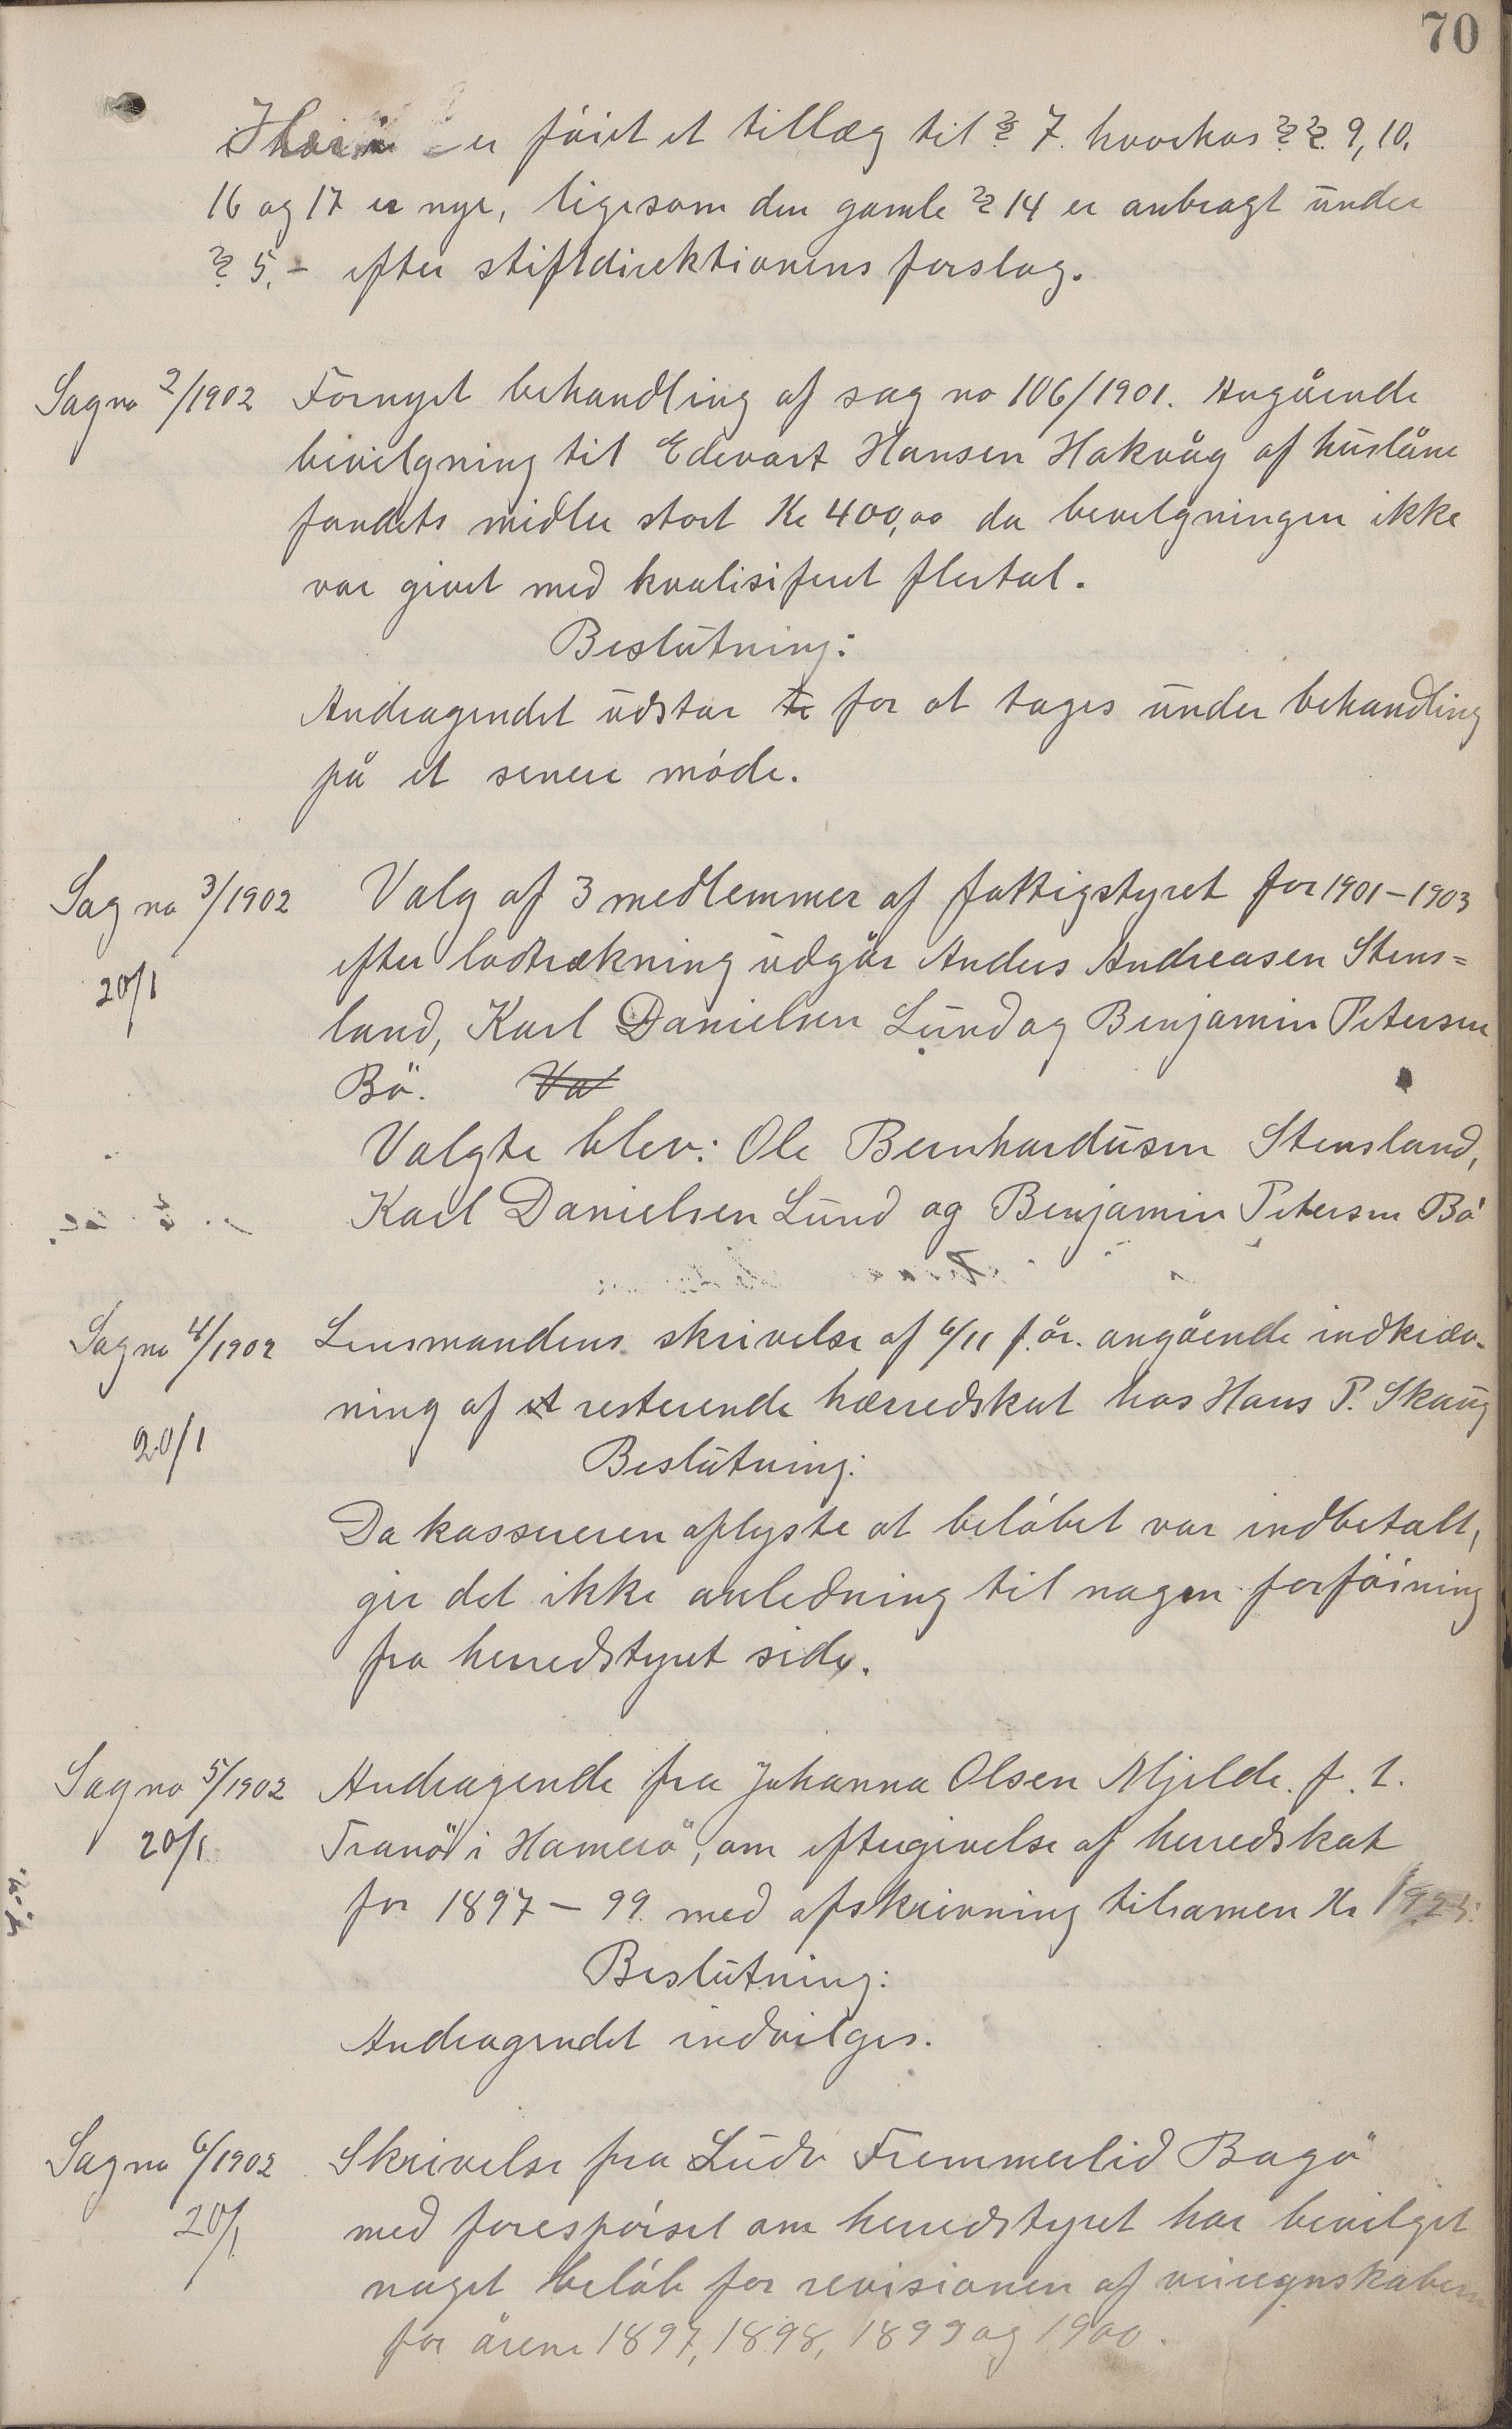 70
er föiet et tillæg til § 7. hvorhos § §. 9, 10,
16 og 17 er nye, ligesom den gamle § 14 er anbragt under
§ 5, - efter stiftdirektionens forslag.
Sag no 2/1902 Fornyet behandling af sag no 106/1901. Angående
bevilgning til Edevart Hansen Hakvåg af huslåne
fondets midler stort Kr 400,00 da bevilgningen ikke
var givet med kvalisiferet flertal.
Beslutning:
Andragendet udstår for at tages under behandling
på et senere möde.
Sag no 3/1902 Valg af 3 medlemmer af fattigstyret for 1901-1903
efter lodtrækning udgår Anders Andreasen Stens=
20/1
land, Karl Danielsen Lund og Benjamin Petersen
Bö. Va
Valgte blev: Ole Bernhardusen Stensland,
Karl Danielsen Lund og Benjamin Petersen Bö
Sag no 4/1902 Lensmandens skrivelse af 6/11 f. år. angående indkræv-
ning af et resterende hærredskat hos Hans P. Skaug
20/1
Beslutning:
Da kassereren oplyste at belöbet var indbetalt,
gir det ikke anledning til nogen forföining
fra herredstyret side.
Sag no 5/1902 Andragende fra Johanna Olsen Mjelde f. t.
20/1 Tranö i Hamerö, om eftergivelse af herredskat
for 1897 - 99 med afskrivning tilsamen Kr
Beslutning:
Andragendet indvilges.
Sag no 6/1902 Skrivelse fra Ludv Fremmerlid Bogö
20/1 med forespörsel om herredstyret har bevilget
noget belöb for revisionen af veiregnskaberne
for årene 1897, 1898, 1899 og 1900.